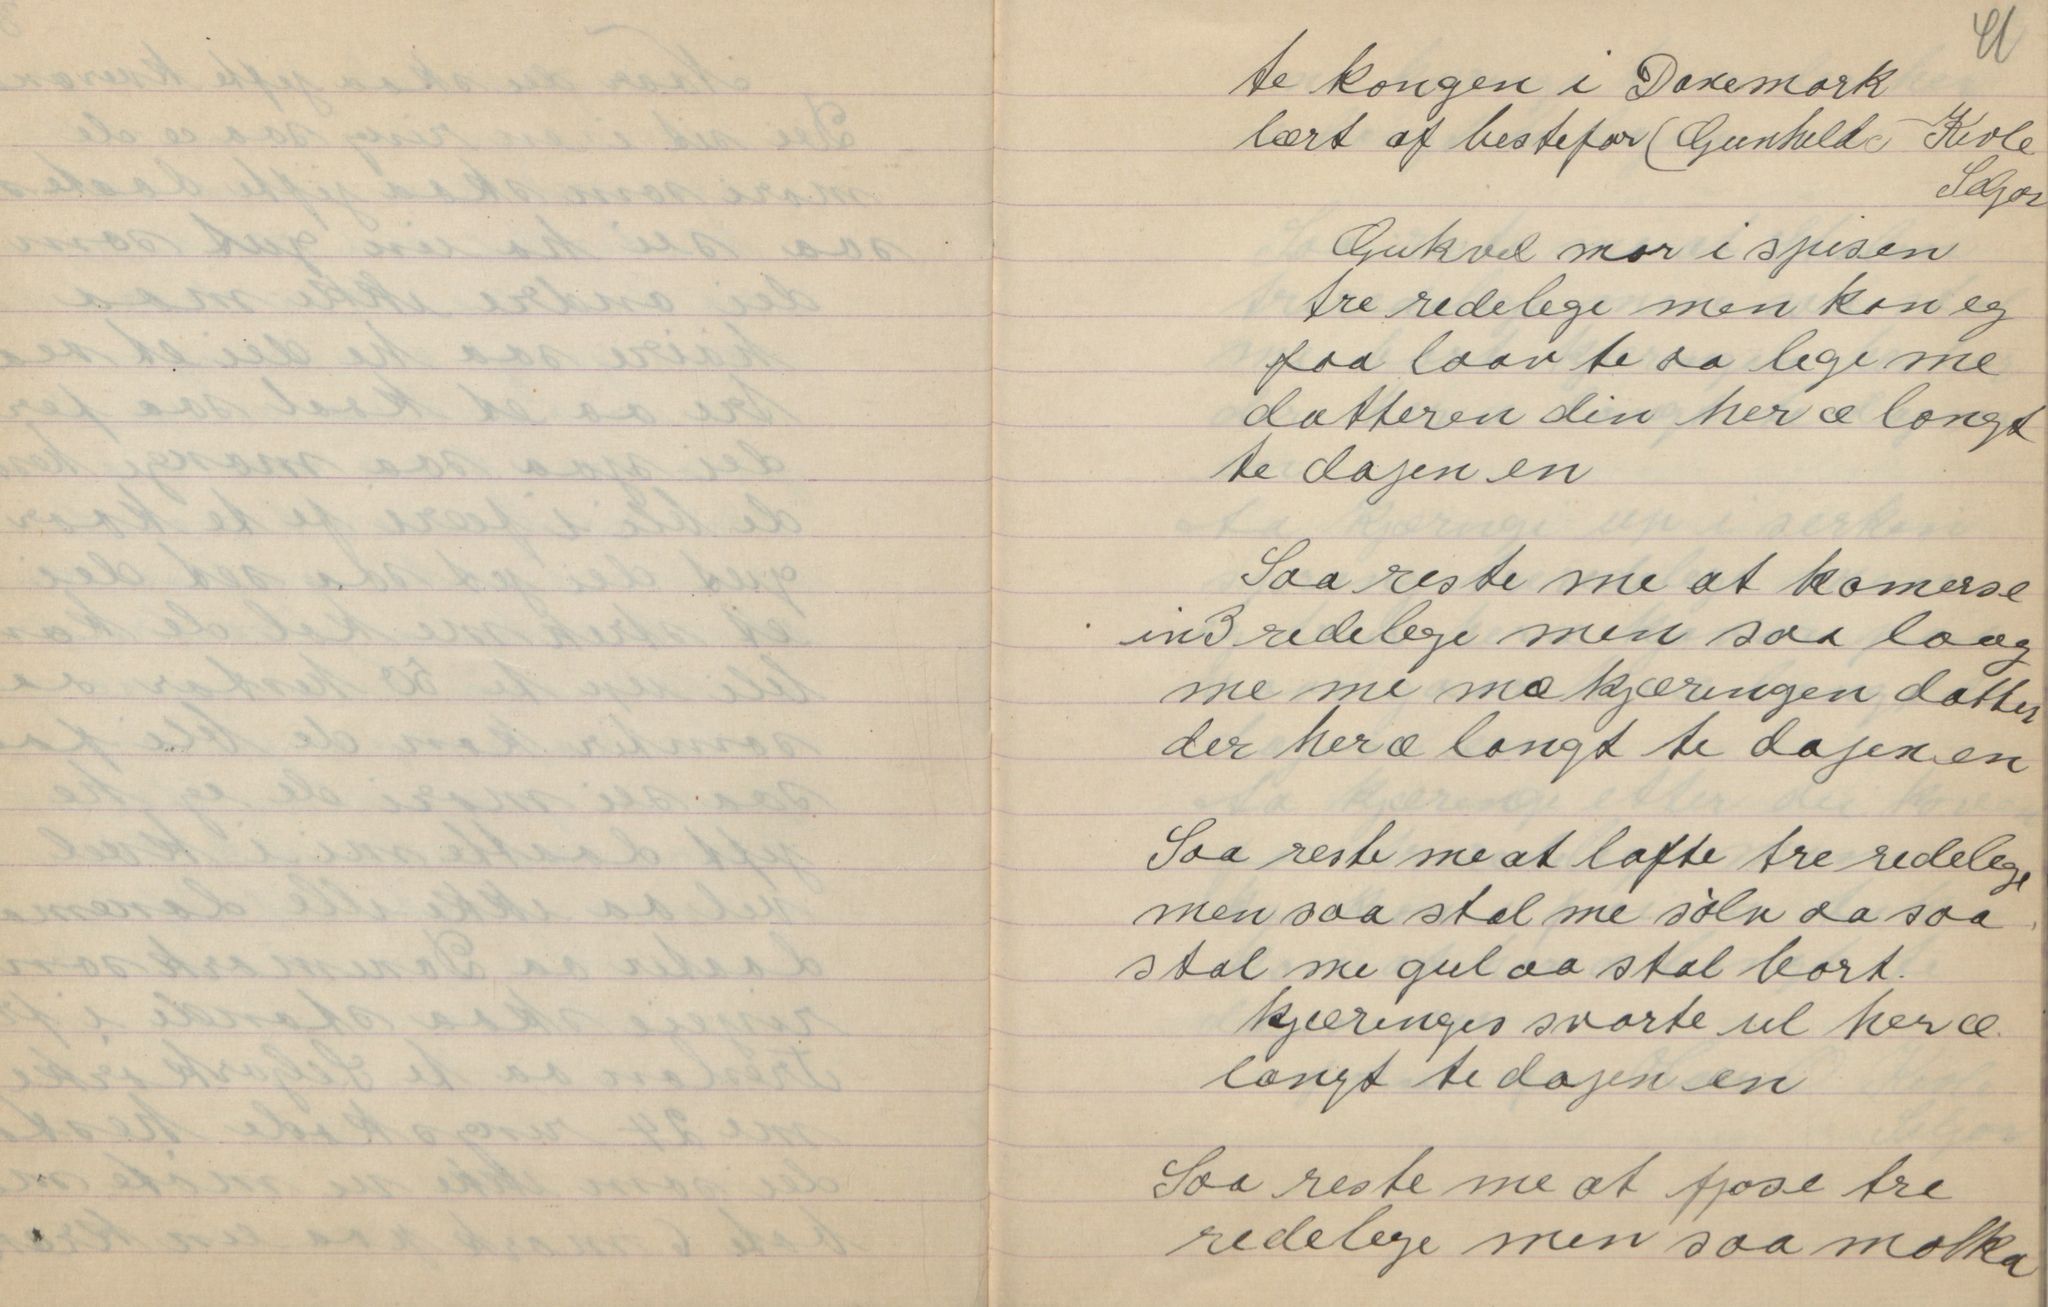 41
te kongen i Danemark
lært af bestefar (Gunhild Kivle
Seljor
Gukvel mor i spisen
tre redelege men kan eg
faa laav te aa lege me
datteren din her æ langt
te dagen en
Saa reste me at kamerse
in 3 redelege men saa laag
me me mæ kjæringen datter
der her æ langt te dagen en
Saa reste me at lofte tre redelege
men saa stal me sölv aa saa
stal me gul aa stal bort.
kjæringes svarte ul her æ
langt te dagen en
Saa reste me at fjose tre
redelege men saa molka